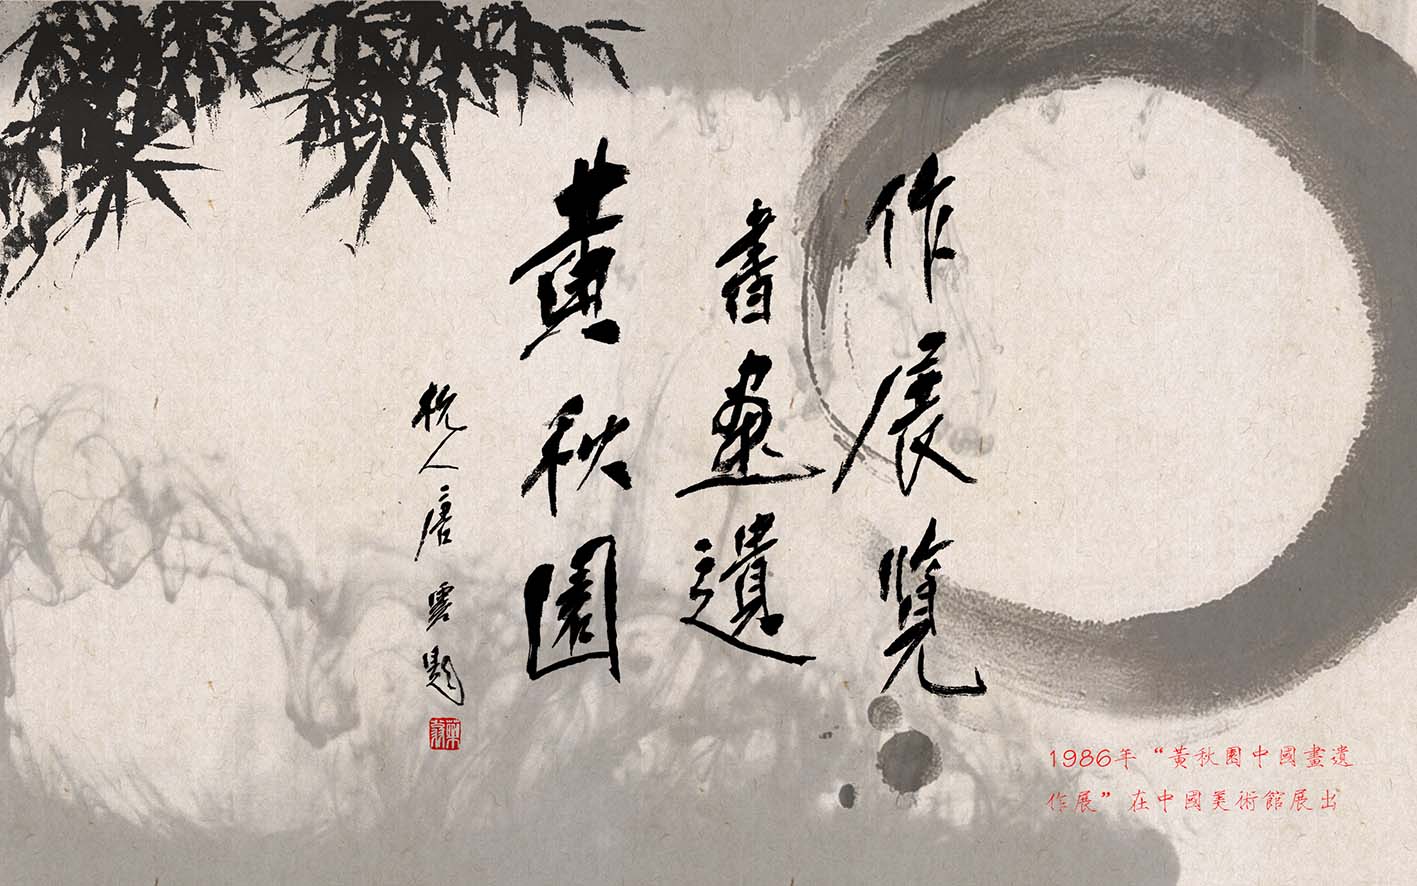 黄秋園
書畫遺
作展覽
杭人唐雲題
藥翁
1986年“黃秋園中國畫遺
作展”在中國美術館展出